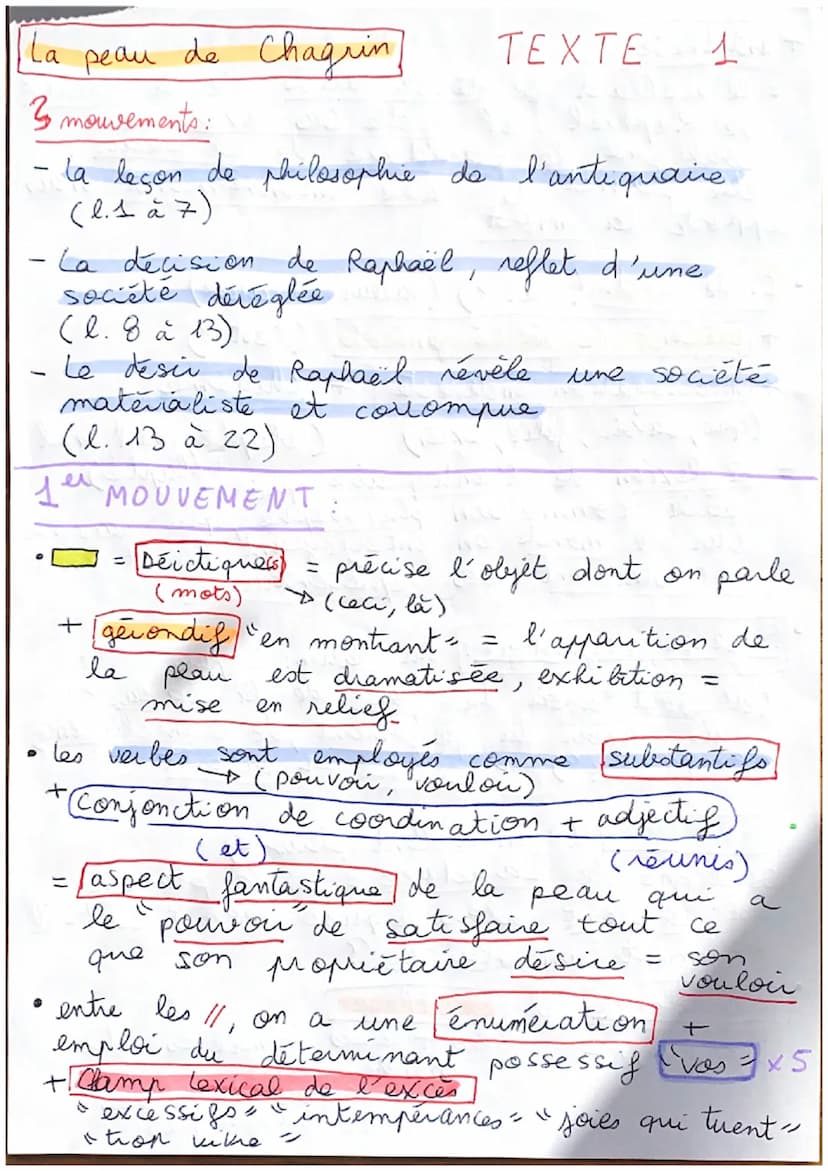 La peau de Chagrin TEXTE 1
3 mouvements :
- La leçon de philosophie de l'antiquaire.
(l.1 à 7)
- La décision de Raphaël, reflet d'une
société déréglée
(l. 8 à 13)
- Le désir de Raphaël révèle une société
matérialiste et corrompue
(l. 13 à 22)
1er MOUVEMENT :
• = Déictique(s) = précise l'objet dont on parle
(mots) → (ceci, là)
+ gérondif "en montrant" = l'apparition de
la peau est dramatisée, exhibition =
mise en relief.
• les verbes sont employés comme substantifs
→ (pouvoir, vouloir)
+ conjonction de coordination + adjectif
(et) (réunis)
= aspect fantastique de la peau qui a
le "pouvoir" de satisfaire tout ce
que son propriétaire désire = son
vouloir
• entre les //, on a une énumération +
emploi du déterminant possessif "vos" x5
+ Champ lexical de l'excès
"excessifs" "intempérances" "joies qui tuent"
"trop vivre"